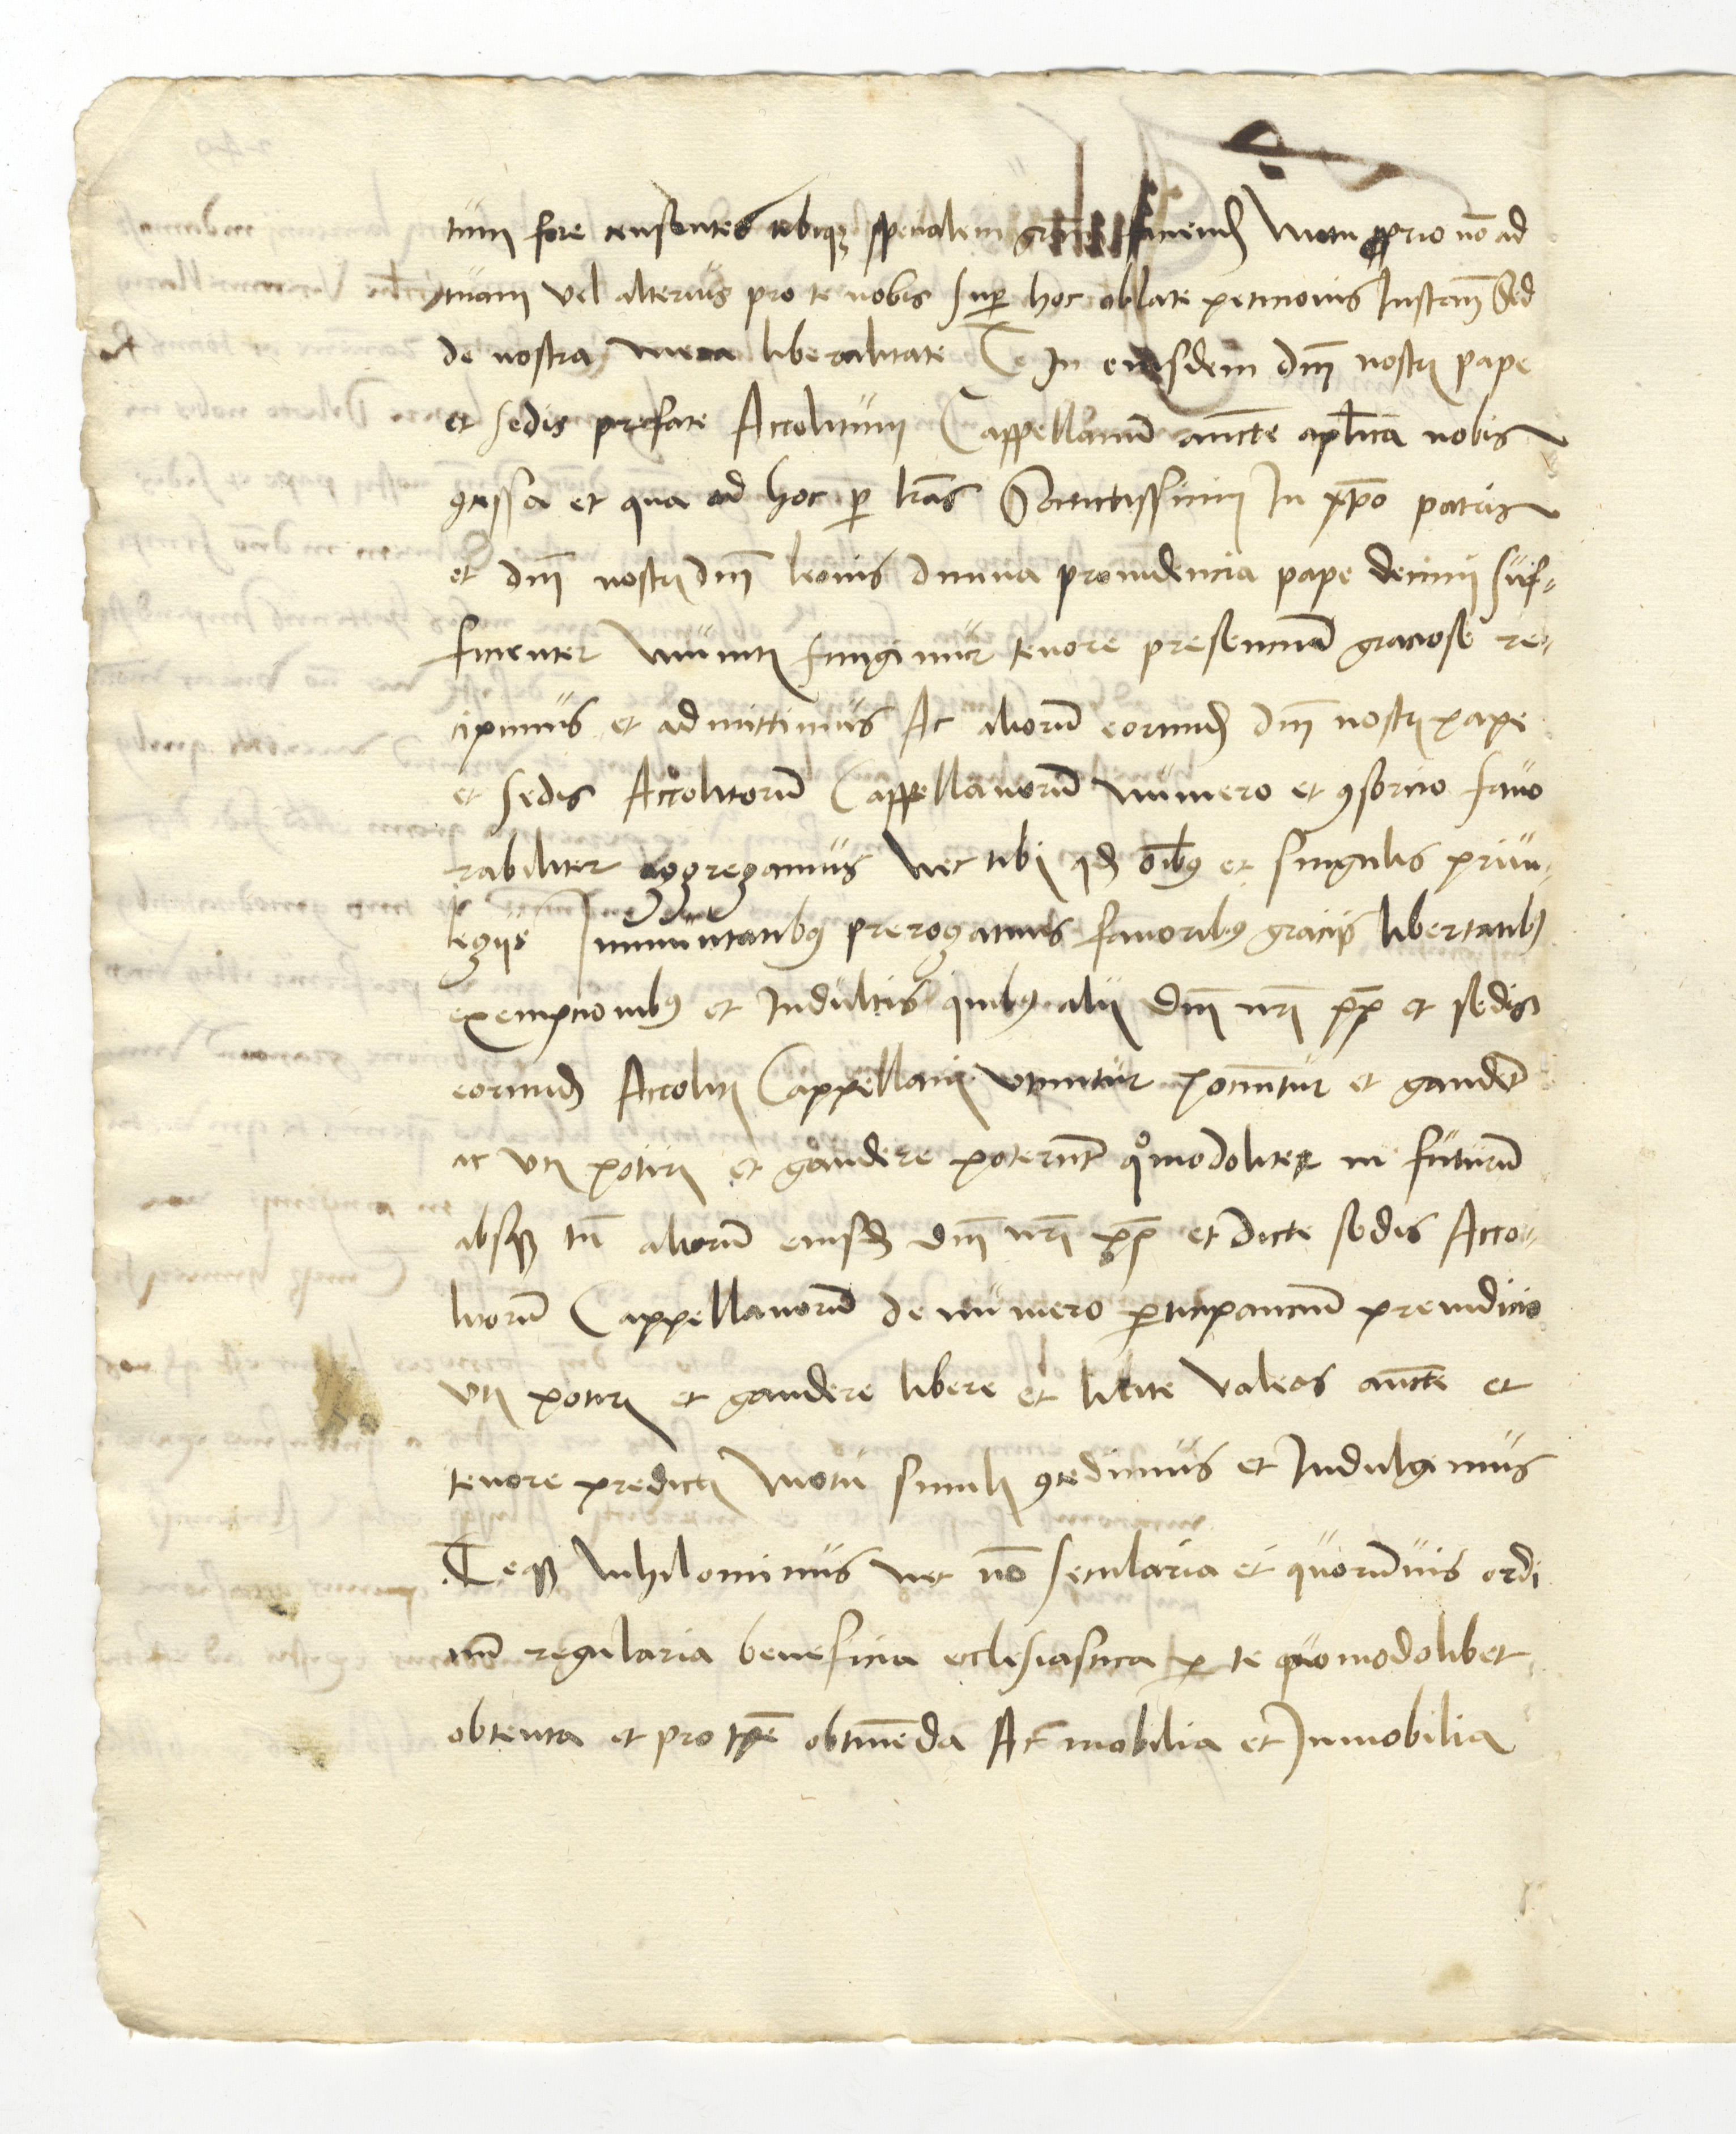 tum fore censentes tibique specialem gram faciend Motu proprio nō ad
tuam vel alterius pro te nobis super hoc oblate peticionis Instanc̄ Sed
de nostra mera liberalitate Te In eiusdem dn̄i nostri pape
et sedis prefate Accolitum Cappellanū aucte ap̄lica nobis
ꝯcessa et qua ad hoc ꝑ lr̄as Sanctissimi In xp̄o patris
et dn̄i nostri dn̄i leonis diuina prouidencia pape decimi suf-
ficienter muniti fungimur tenore presenciū graciose re-
cipimus et admittimus Ac aliorū eorund dn̄i nostri pape
et sedis Accolitorū Cappellanorū numero et ꝯsorcio fauo
rabiliter aggregamus Nec tibi qd oīb9 et singulis priui-
legiis Immunitatib9 prerogatiuis fauorib9 graciis libertatib9
exempcionib9 et Indultis quib9 alii dn̄i nrī pp̄ et sedis
eorund Accoliti Cappellani vtuntur pociūtur et gaudēt
ac vti potiri et gaudere poterūt qomodolibet in futurū
absqꝫ tn̄ aliorū eiusd dn̄i nrī pp̄ et dicte sedis Acco-
litorū Cappellanorū de numero ꝑticipanciū preiudicio
vti potiri et gaudere libere et licite valeas aucte et
tenore predicti Motu simili ꝯcedimus et Indulgemus
Teqꝫ Nihilominus nec nō secularia et quorūuis ordi
nū regularia beneficia ecclesiastica ꝑ te quomodolibet
obtenta et pro tp̄e obtinēda Ac mobilia et Inmobilia